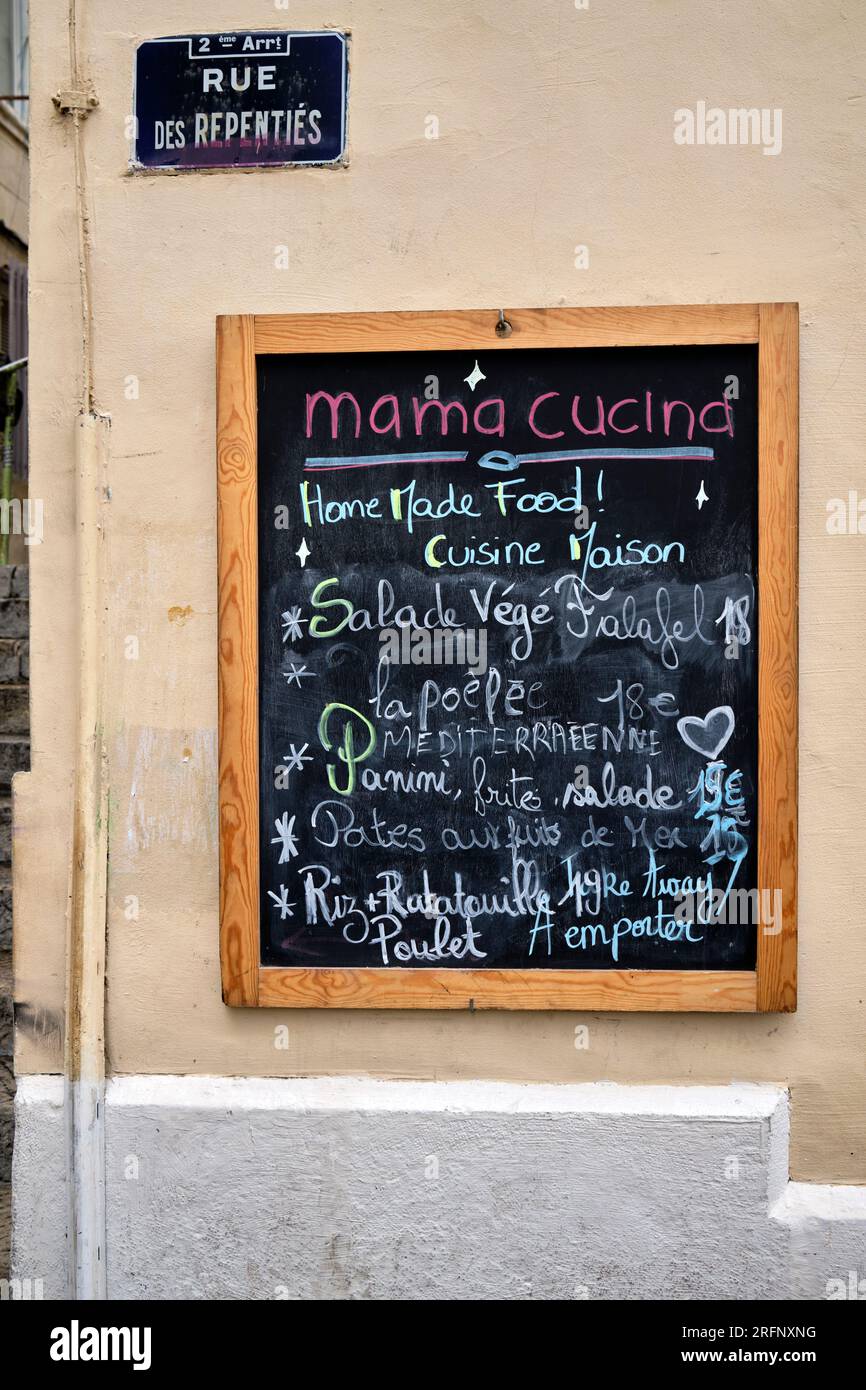 2ème Arrt
RUE
DES REPENTIÉS
mama cucina
Home Made Food!
Cuisine Maison
Salade Végé Falafel 18
la poêlée 18€
MEDITERRAÉENNE
Panini, frites, salade 15€
Pates aux fruits de Mer 15€
Riz + Ratatouille 19
Take Away
Poulet
A emporter
alamy
Image ID: 2RFNXNG
www.alamy.com